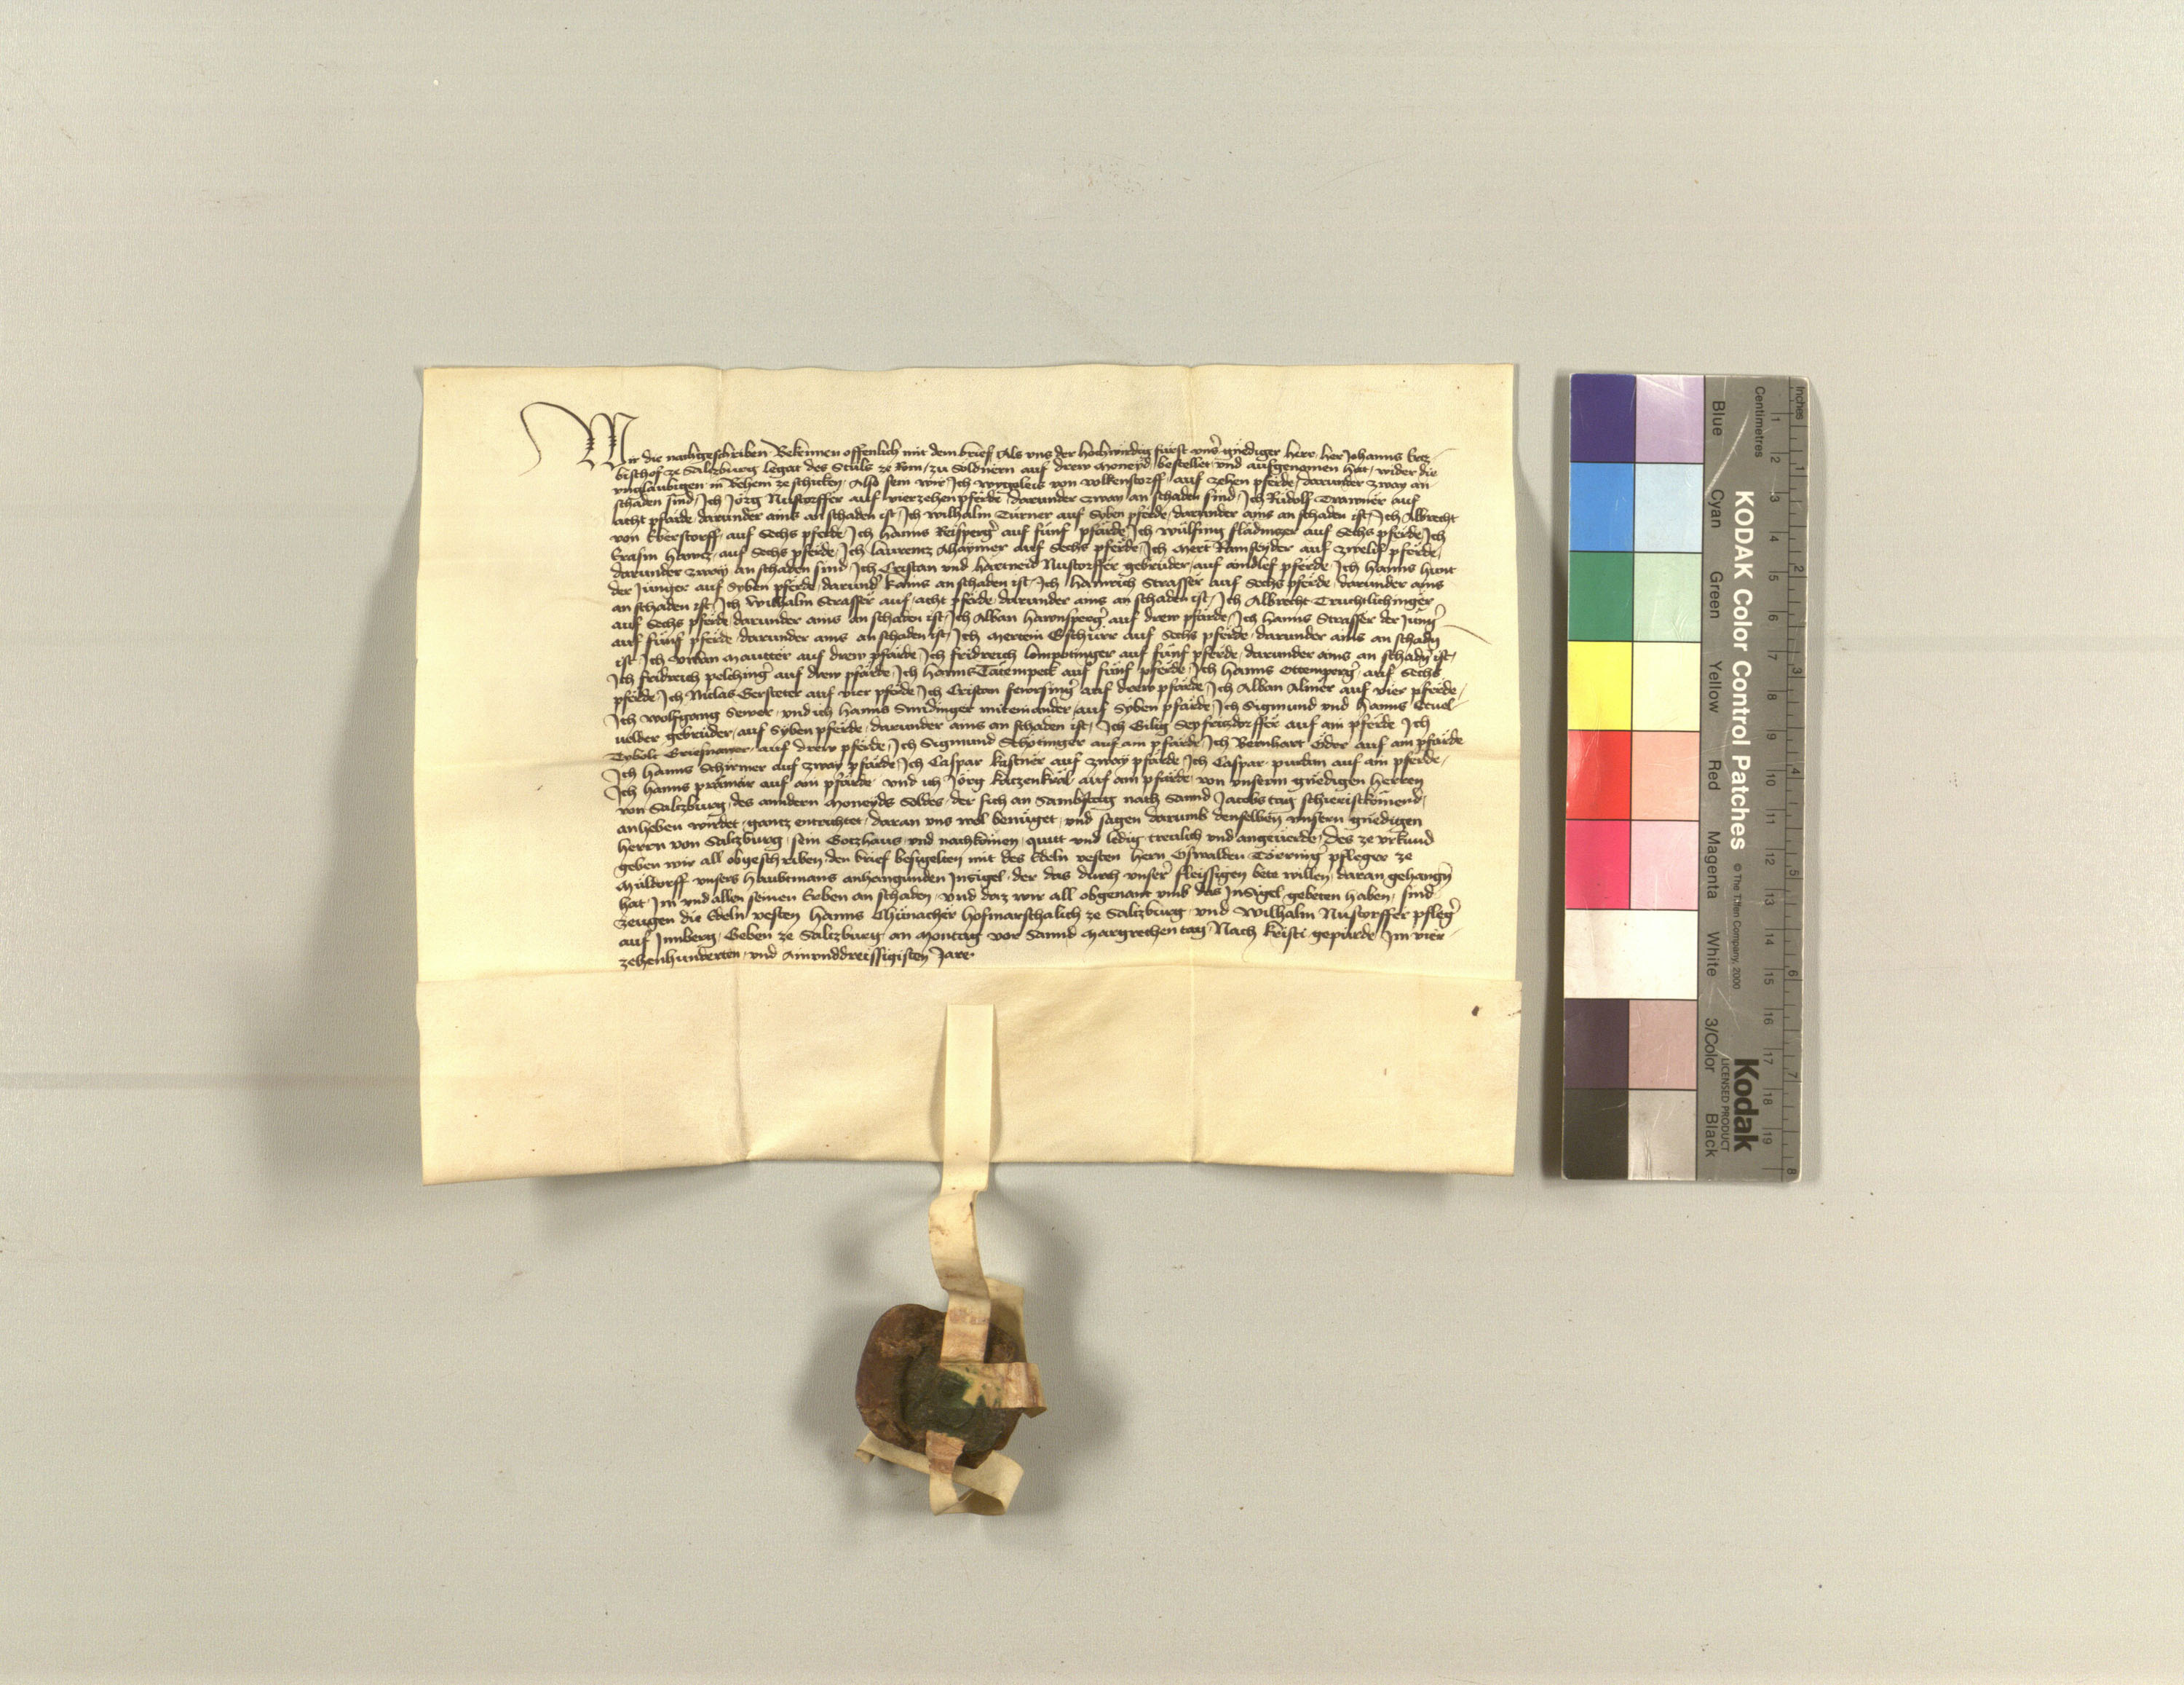 Wir die nachgeschriben Bekennen offenlich mit dem brief Als vns der hochwirdig fürst vnser gnediger herr her Johanns Ercz-
bischof ze Salzburg legat des Stuls ze Rom, zu Soldnern auf drew moneyd, bestellet vnd aufgenomen hat, wider die
vnglaubigen in Behem ze schicken, Also sein wir Ich wygoleis von volkenstorff, auf zehen pferde, darunder zway an
schaden sind, Ich Jörg Nustorffer auf vierzehen pferde darunder zway an schaden sind, Ich Rudolf Trawner auf
acht pfärde, darunder ains an schaden ist, Ich wilhalm Turner auf Syben pferde, darunder ains an schaden ist, Ich Albrecht
von Eberstorff, auf Sechs pferde, Ich Hanns Reisperger auf fünf pfärde, Ich wülfing flädinzer auf Sechs pferde, Ich
Erasm Hawcz, auf Sechs pferde, Ich laurencz Ahaymer auf Sechs pferde, Ich Mert Ramseyder auf zwelif pferde,
darunder zway an schaden sind, Ich Cristan vnd Hartneid Nustorffer gebruder, auf aindlef pferde, Ich Hanns Hunt
der Junger auf Syben pferde, darunder kains an schaden ist, Ich Hainrich Strasser auf Sechs pferde, darunder ains
an schaden ist, Ich Wilhalm Strasser auf acht pferde, darunder ains an schaden ist, Ich Albrecht Truchtlichinger
auf Sechs pferde, darunder ains an schaden ist, Ich Alban Hawnsperger auf drew pfärde, Ich Hanns Strasser der Jung
auf fünf pferde, darunder ains an schaden ist, Ich Mertein Gschürr auf Sechs pferde, darunder ains an schadn
ist, Ich Urban Mautter auf drew pfärde, Ich fridreich lompotinger auf fünf pferde, darunder ains an schadn ist,
Ich fridreich pelchinger auf drew pfärde, Ich Hanns Tätempeck auf fünf pferde, Ich Hanns Ottemperger, auf Sechs
pferde, Ich Niclas Gersteter auf vier pferde, Ich Cristan fewrsinger auf drew pfärde, Ich Alban Almer auf vier pferde,
Ich wolfgang Sewer, vnd ich Hanns Smidinger miteinander, auf Syben pfärde, Ich Sigmund vnd Hanns
gebruder, auf Syben pferde, darunder ains an schaden ist, Ich Gilig Seyfrisdorffer auf ain pferde Ich
Tybolt Griesnawer, auf drew pferde, Ich Sigmund Schotinger auf ain pfärde, Ich Bernhart Öder auf ain pfärde
Ich Hanns Schirmer auf zway pfärde, Ich Caspar kastner auf zway pfärde, Ich Caspar purdan auf ain pferde,
Ich Hanns prämär auf ain pfärde, vnd ich Jörg katzenkräl, auf ain pfärde, von vnserm gnedigen Herren
von Salczburg, des anndern moneyds Soldes, der sich an Sambstag nach Sannd Jacobs tag schieristkomend,
anheben wirdet, gantz entrichtet, daran vns wol benüget, vnd sagen darumb denselben vnsern gnedigen
Herrn von Salzburg, sein Gotzhaus vnd nachkomen, quitt vnd ledig, trewlich vnd angeuerde, Des ze vrkund
geben wir all obgeschriben den brief besigelten mit des Edeln vesten Hern Oswalden Törringer pfleger ze
Müldorff vnsers Haubtmans anhangunden Insigel, der das durch vnser fleissigen bete willen, daran gehangn
hat, Im vnd allen seinen Erben an schaden, vnd daz wir all obgenant vmb das InSigel gebeten haben, sind
zeugen die Edeln vesten Hanns Chünacher hofmarschalich ze Salczburg, vnd Wilhalm Nustorffer pfleger
auf Jnnberg, Geben ze Salczburg, an Montag vor Sannd Margrethen tag, Nach kristi gepürde, Im vier-
zehenhunderten, vnd Ainvnddreissigisten Jare.
KODAK Color Control Patches
© The Tiffen Company, 2000
Kodak
LICENSED PRODUCT
Inches 1 2 3 4 5 6 7 8
Centimetres 1 2 3 4 5 6 7 8 9 10 11 12 13 14 15 16 17 18 19
Blue Cyan Green Yellow Red Magenta White 3/Color Black